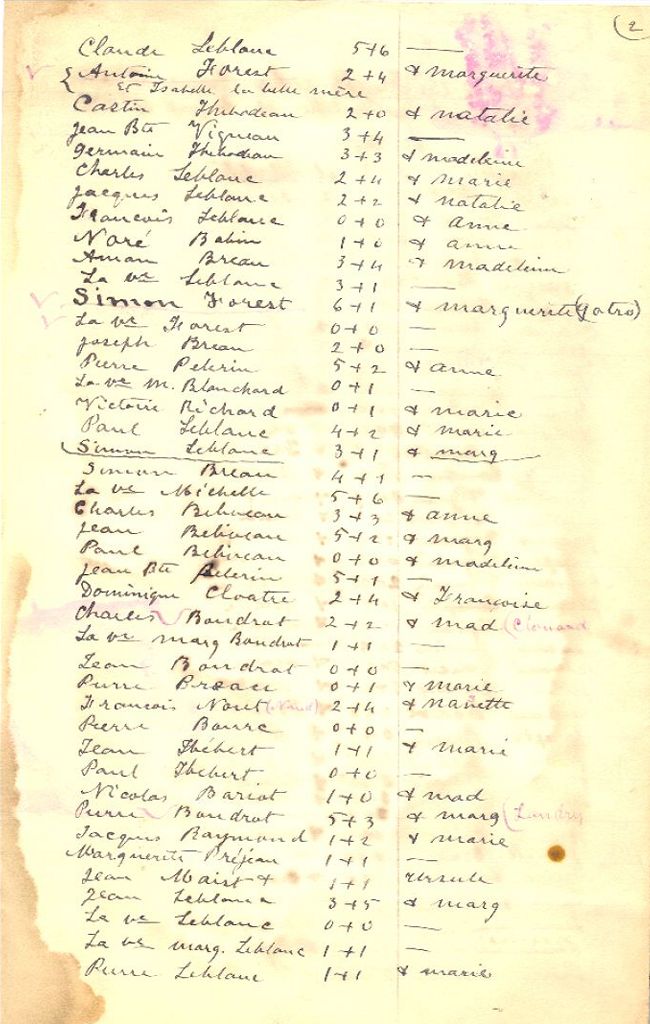 2
Claude Leblanc 5+6 —
Antoine Forest 2+4 & Marguerite
Et Isabelle la belle mère
Castin Thibodeau 2+0 & natalie
Jean Bte Vigneau 3+4 —
Germain Thibodeau 3+3 & madeleine
Charles Leblanc 2+4 & marie
Jacques Leblanc 2+2 & natalie
Francois Leblanc 0+0 & Anne
Noré Babin 1+0 & anne
Aman Breau 3+4 & madeleine
La ve Leblanc 3+1 —
Simon Forest 6+1 & marguerite (gotro)
La ve Forest 0+0 —
Joseph Breau 2+0 —
Pierre Pelerin 5+2 & anne
La ve M. Blanchard 0+1 —
Victoire Richard 0+1 & marie
Paul Leblanc 4+2 & marie
Simon Leblanc 3+1 & marg
Simon Breau 4+1 —
La ve Michelle 5+6 —
Charles Beliveau 3+3 & anne
Jean Beliveau 5+2 & marg
Paul Beliveau 0+0 & madeleine
Jean Bte Pelerin 5+1 —
Dominique Cloatre 2+4 & Francoise
Charles Boudrot 2+2 & mad
La ve marg Boudrot 1+1 —
Jean Boudrot 0+0 —
Pierre Breau 0+1 & marie
Francois Nout 2+4 & nanette
Pierre Bourc 0+0 —
Jean Thébert 1+1 & marie
Paul Thebert 0+0 —
Nicolas Bariot 1+0 & mad
Pierre Boudrot 5+3 & marg (Landry
Jacques Raymond 1+2 & marie
Marguerite Préjean 1+1 —
Jean 1+1 Ursule
Jean Leblanc 3+5 & marg
La ve Leblanc 0+0 —
La ve marg. Leblanc 1+1 —
Pierre Leblanc 1+1 & marie